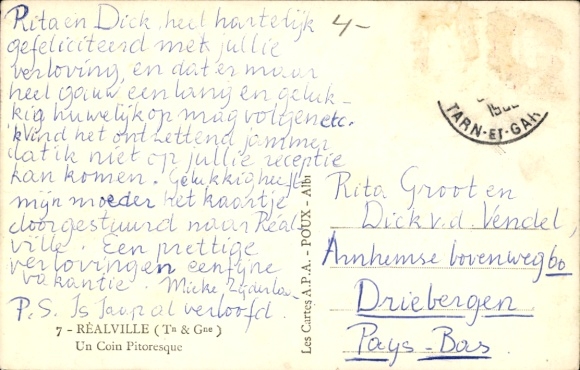 Rita en Dick, heel hartelijk
gefeliciteerd met jullie
verloving, en dat er maar
heel gauw een lang en geluk-
kig huwelijk op mag volgen etc.
'k Vind het ontzettend jammer
dat ik niet op jullie receptie
kan komen. Gelukkig heeft
mijn moeder het kaartje
doorgestuurd naar Réal-
ville. Een prettige
verlovingen een fijne
vakantie. Mieke
P.S. Is Jaap al verloofd.
7 - RÉALVILLE (Tn & Gne)
Un Coin Pitoresque
4-
Les Cartes A.P.A. - POUX - Albi
TARN-ET-GAR
Rita Groot en
Dick v.d. Vendel,
Arnhemse bovenweg 60
Driebergen
Pays-Bas.